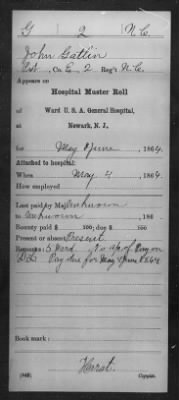 G 2 N.C.
John Gatlin
Pvt., Co. E, 2 Reg't N.C.
Appears on
Hospital Muster Roll
of Ward U. S. A. General Hospital,
at Newark, N. J.,
for May & June, 1864.
Attached to hospital:
When May 4, 1864
How employed
Last paid by Maj. Unknown
to Unknown, 186 .
Bounty paid $ 100; due $ 100
Present or absent Present
Remarks: 5 Ward
Pay due for May & June 1864
Book mark:
Hurst.
(648) Copyist.